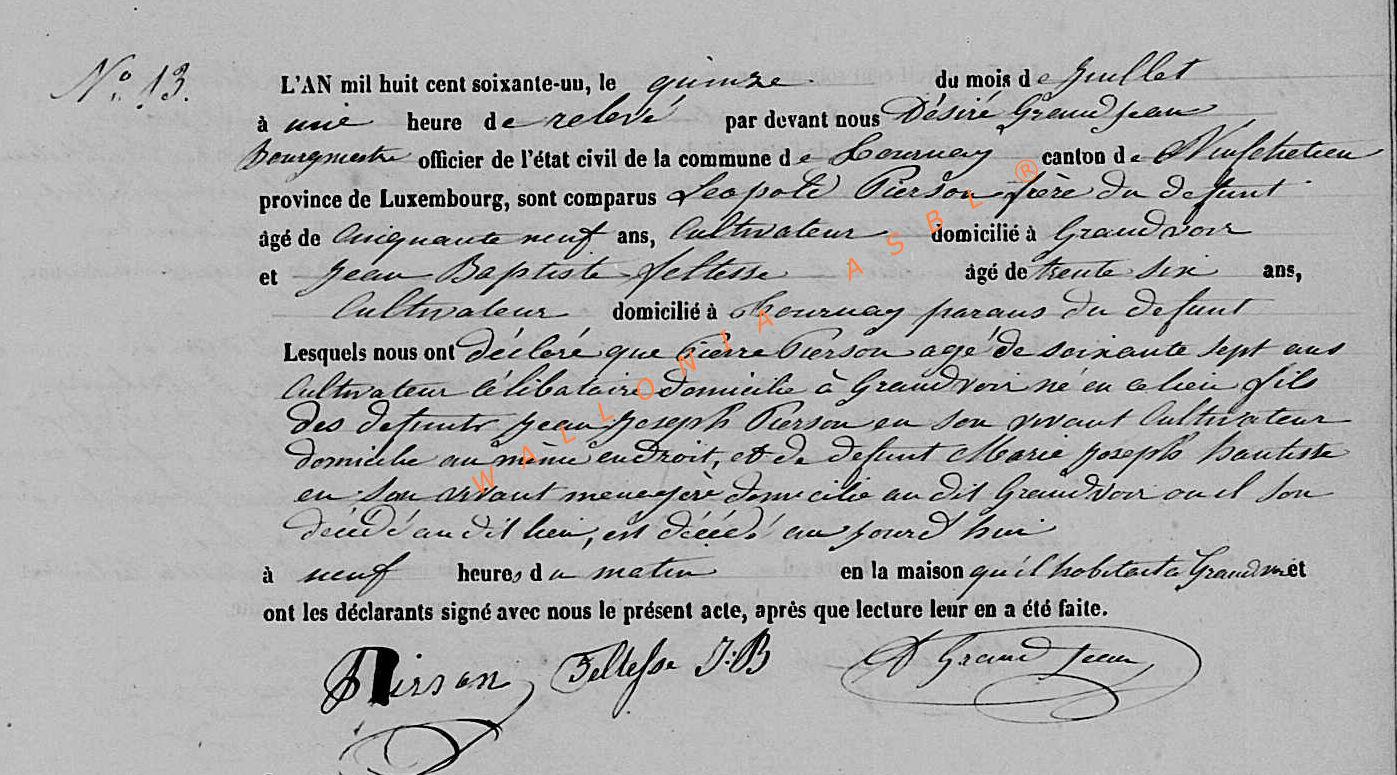 N° 13.
L'AN mil huit cent soixante-un, le quinze du mois de Juillet
à une heure de relevé par devant nous Désiré Grandjean
Bourgmestre officier de l'état civil de la commune de Tournay canton de Neufchateau
province de Luxembourg, sont comparus Leopold Pierson frère du defunt
âgé de Cinquante neuf ans, Cultivateur domicilié à Grandvoir
et Jean Baptiste Feltesse âgé de trente six ans,
Cultivateur domicilié à Tournay parans du defunt
Lesquels nous ont déclaré que Pierre Pierson agé de soixante sept ans
Cultivateur Célibataire domicilie à Grandvoir né en ce lieu fils
des defunts Jean Joseph Pierson en son vivant Cultivateur
domicilie au même endroit, et de defunt Marie Joseph hautisse
en son vivant menagère domicilie au dit Grandvoir ou il son
décédé au dit lieu, est décédé au jourd'hui
à neuf heures du matin en la maison qu'il habitait à Grandvoir et
ont les déclarants signé avec nous le présent acte, après que lecture leur en a été faite.
Pierson Feltesse J:B D Grandjean
WALLONIA ASBL ®